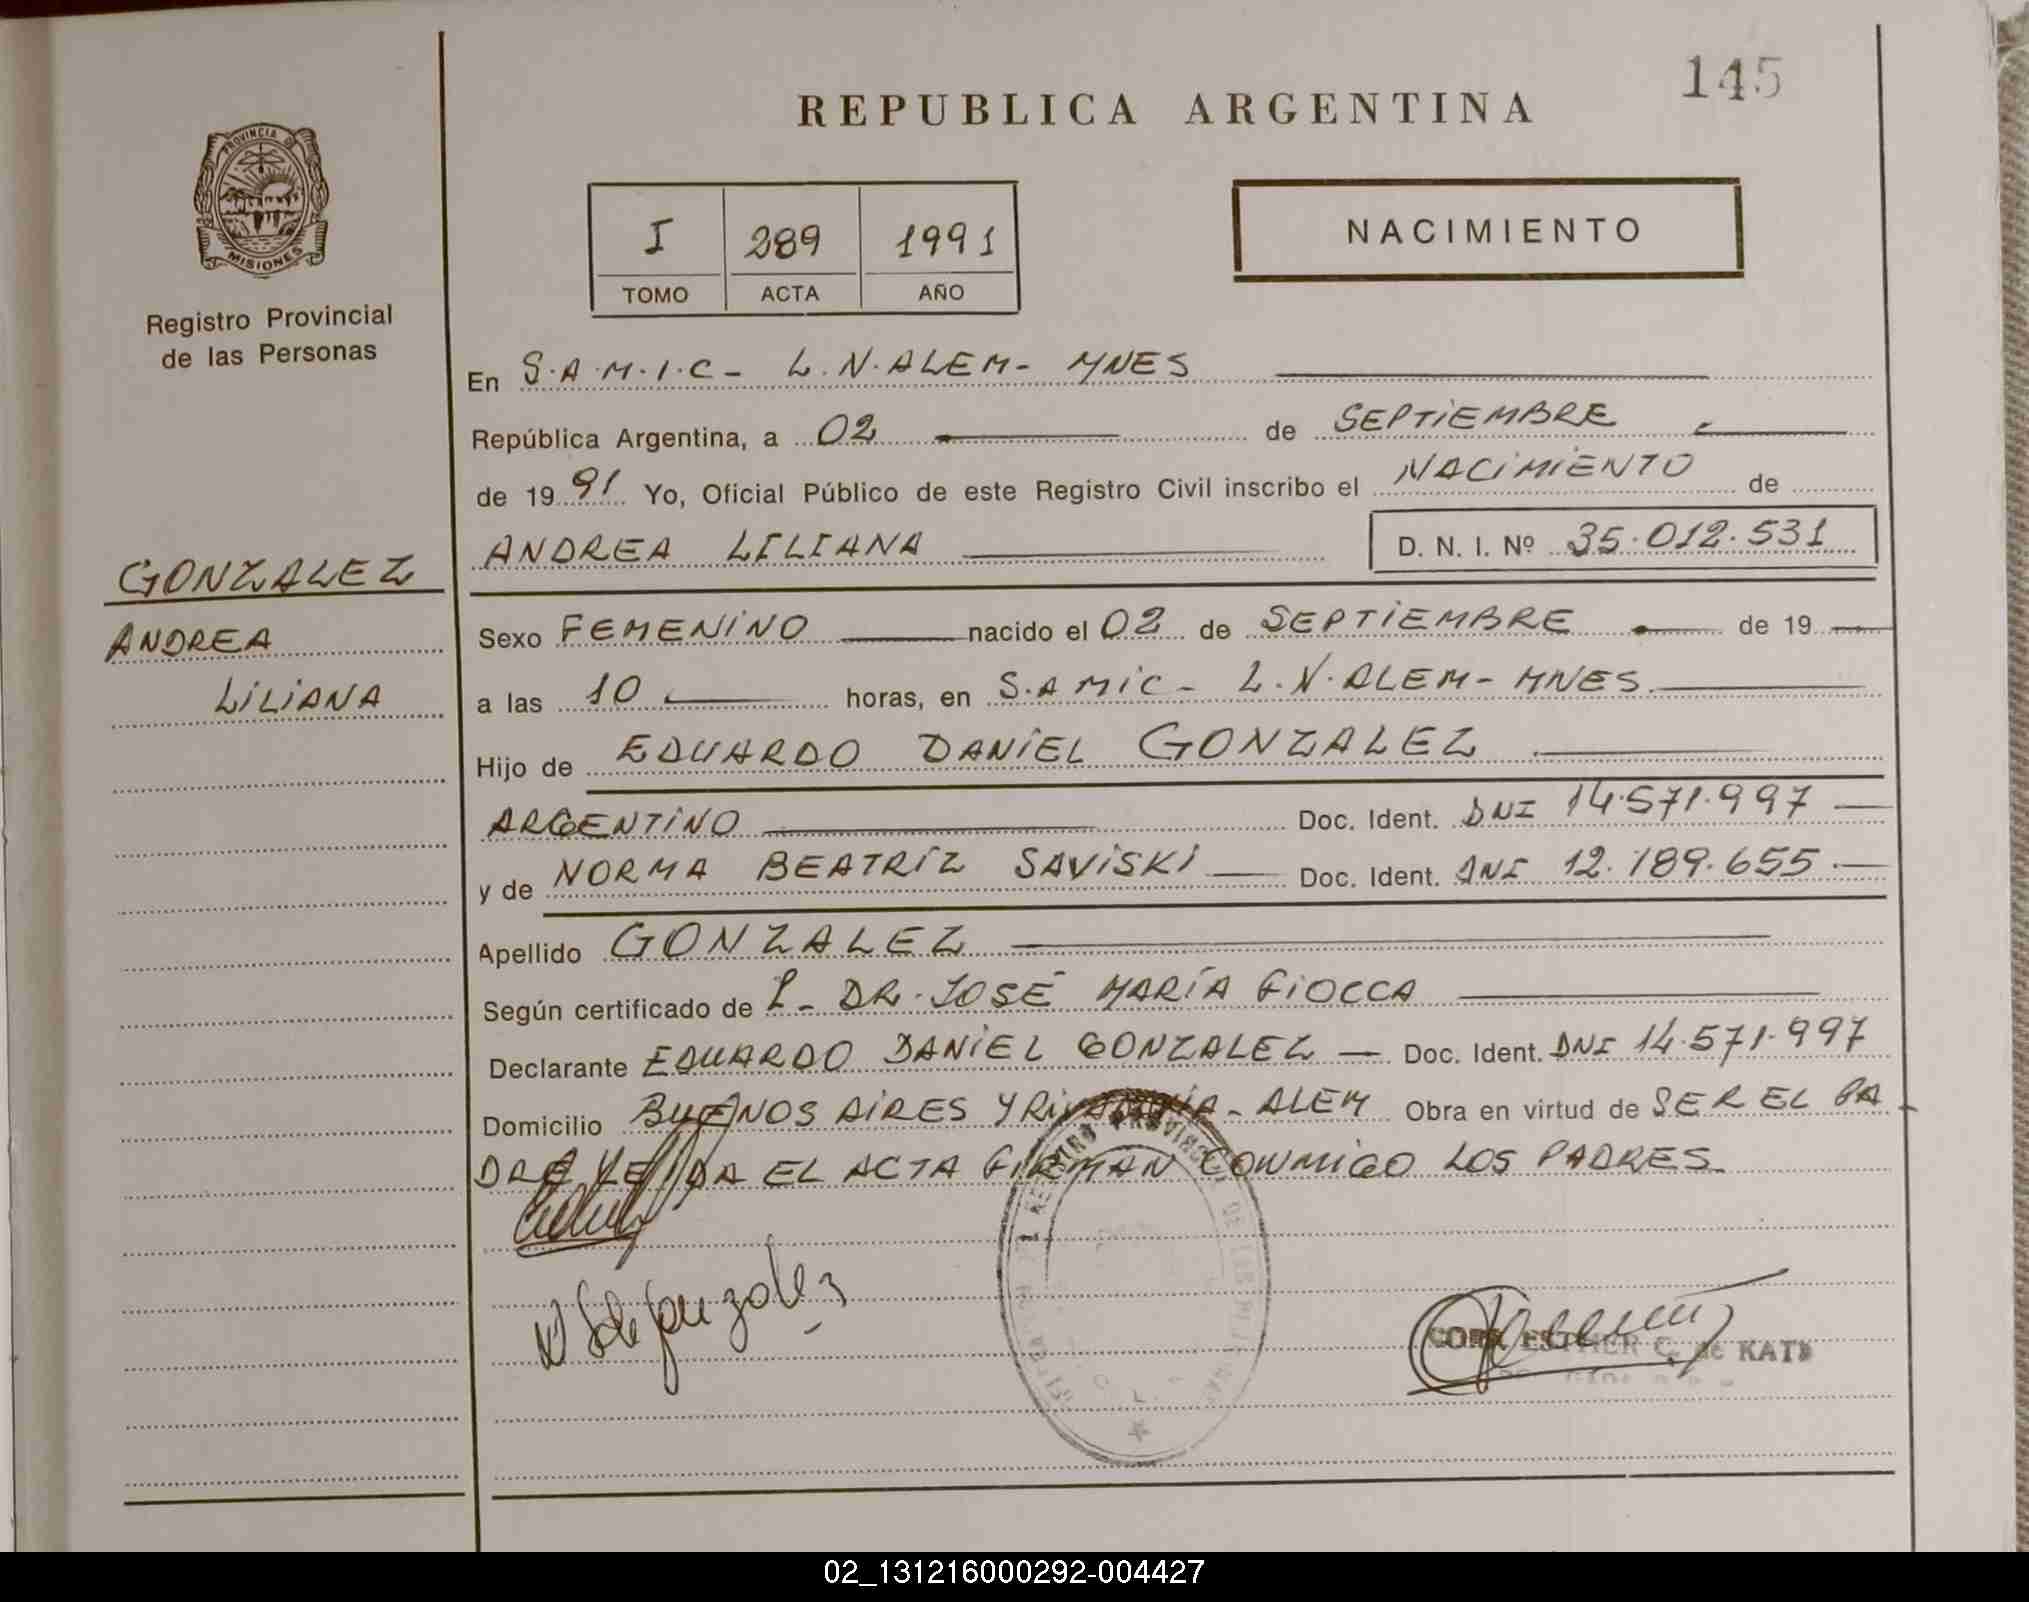 145
REPUBLICA ARGENTINA
PROVINCIA DE
MISIONES
Registro Provincial
de las Personas
I 289 1991
TOMO ACTA AÑO
NACIMIENTO
En S.A.M.I.C - L.N.ALEM - MNES
República Argentina, a 02 de SEPTIEMBRE
de 19 91 Yo, Oficial Público de este Registro Civil inscribo el NACIMIENTO de
ANDREA LILIANA D. N. I. Nº 35.012.531
GONZALEZ
ANDREA
LILIANA
Sexo FEMENINO nacido el 02 de SEPTIEMBRE de 19
a las 10 horas, en S.A MIC - L.N.ALEM - MNES
Hijo de EDUARDO DANIEL GONZALEZ
ARGENTINO Doc. Ident. DNI 14.571.997
y de NORMA BEATRIZ SAVISKI Doc. Ident. DNI 12.189.655
Apellido GONZALEZ
Según certificado de DR. JOSÉ MARÍA FIOCCA
Declarante EDUARDO DANIEL GONZALEZ Doc. Ident. DNI 14.571.997
Domicilio BUENOS AIRES Y RIVADAVIA - ALEM Obra en virtud de SER EL PA
DRE LEIDA EL ACTA FIRMAN CONMIGO LOS PADRES
ESTHER C. de KATZ
02_131216000292-004427